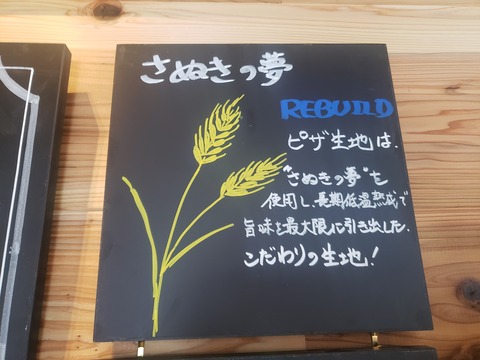 さぬきの夢
REBUILD
ピザ生地は、
"さぬきの夢"を
使用し、長期低温熟成で
旨味を最大限に引き出した、
こだわりの生地!